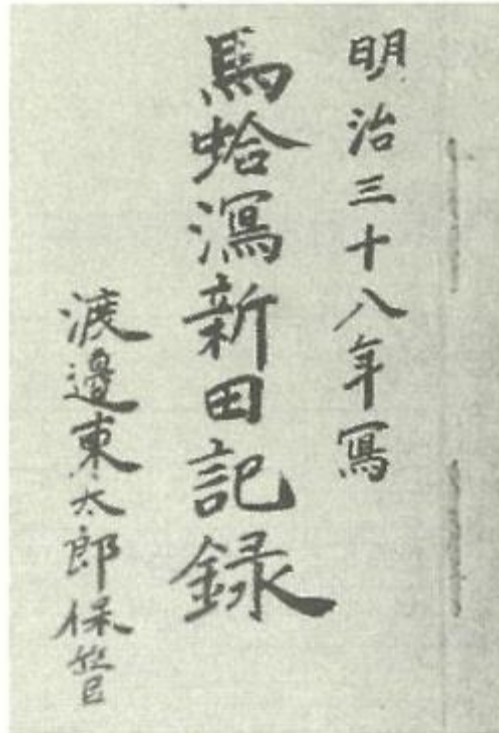 明治三十八年寫
馬蛤潟新田記録
渡邉東太郎保管